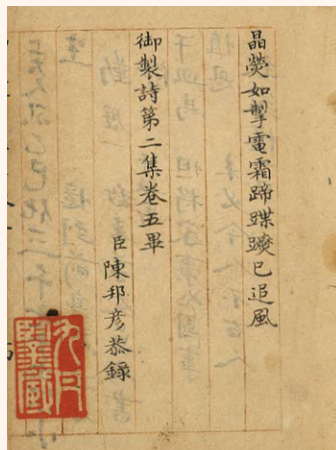 晶熒如掣電霜蹄蹀躞已追風
御製詩第二集卷五畢
臣陳邦彥恭錄
鑒藏